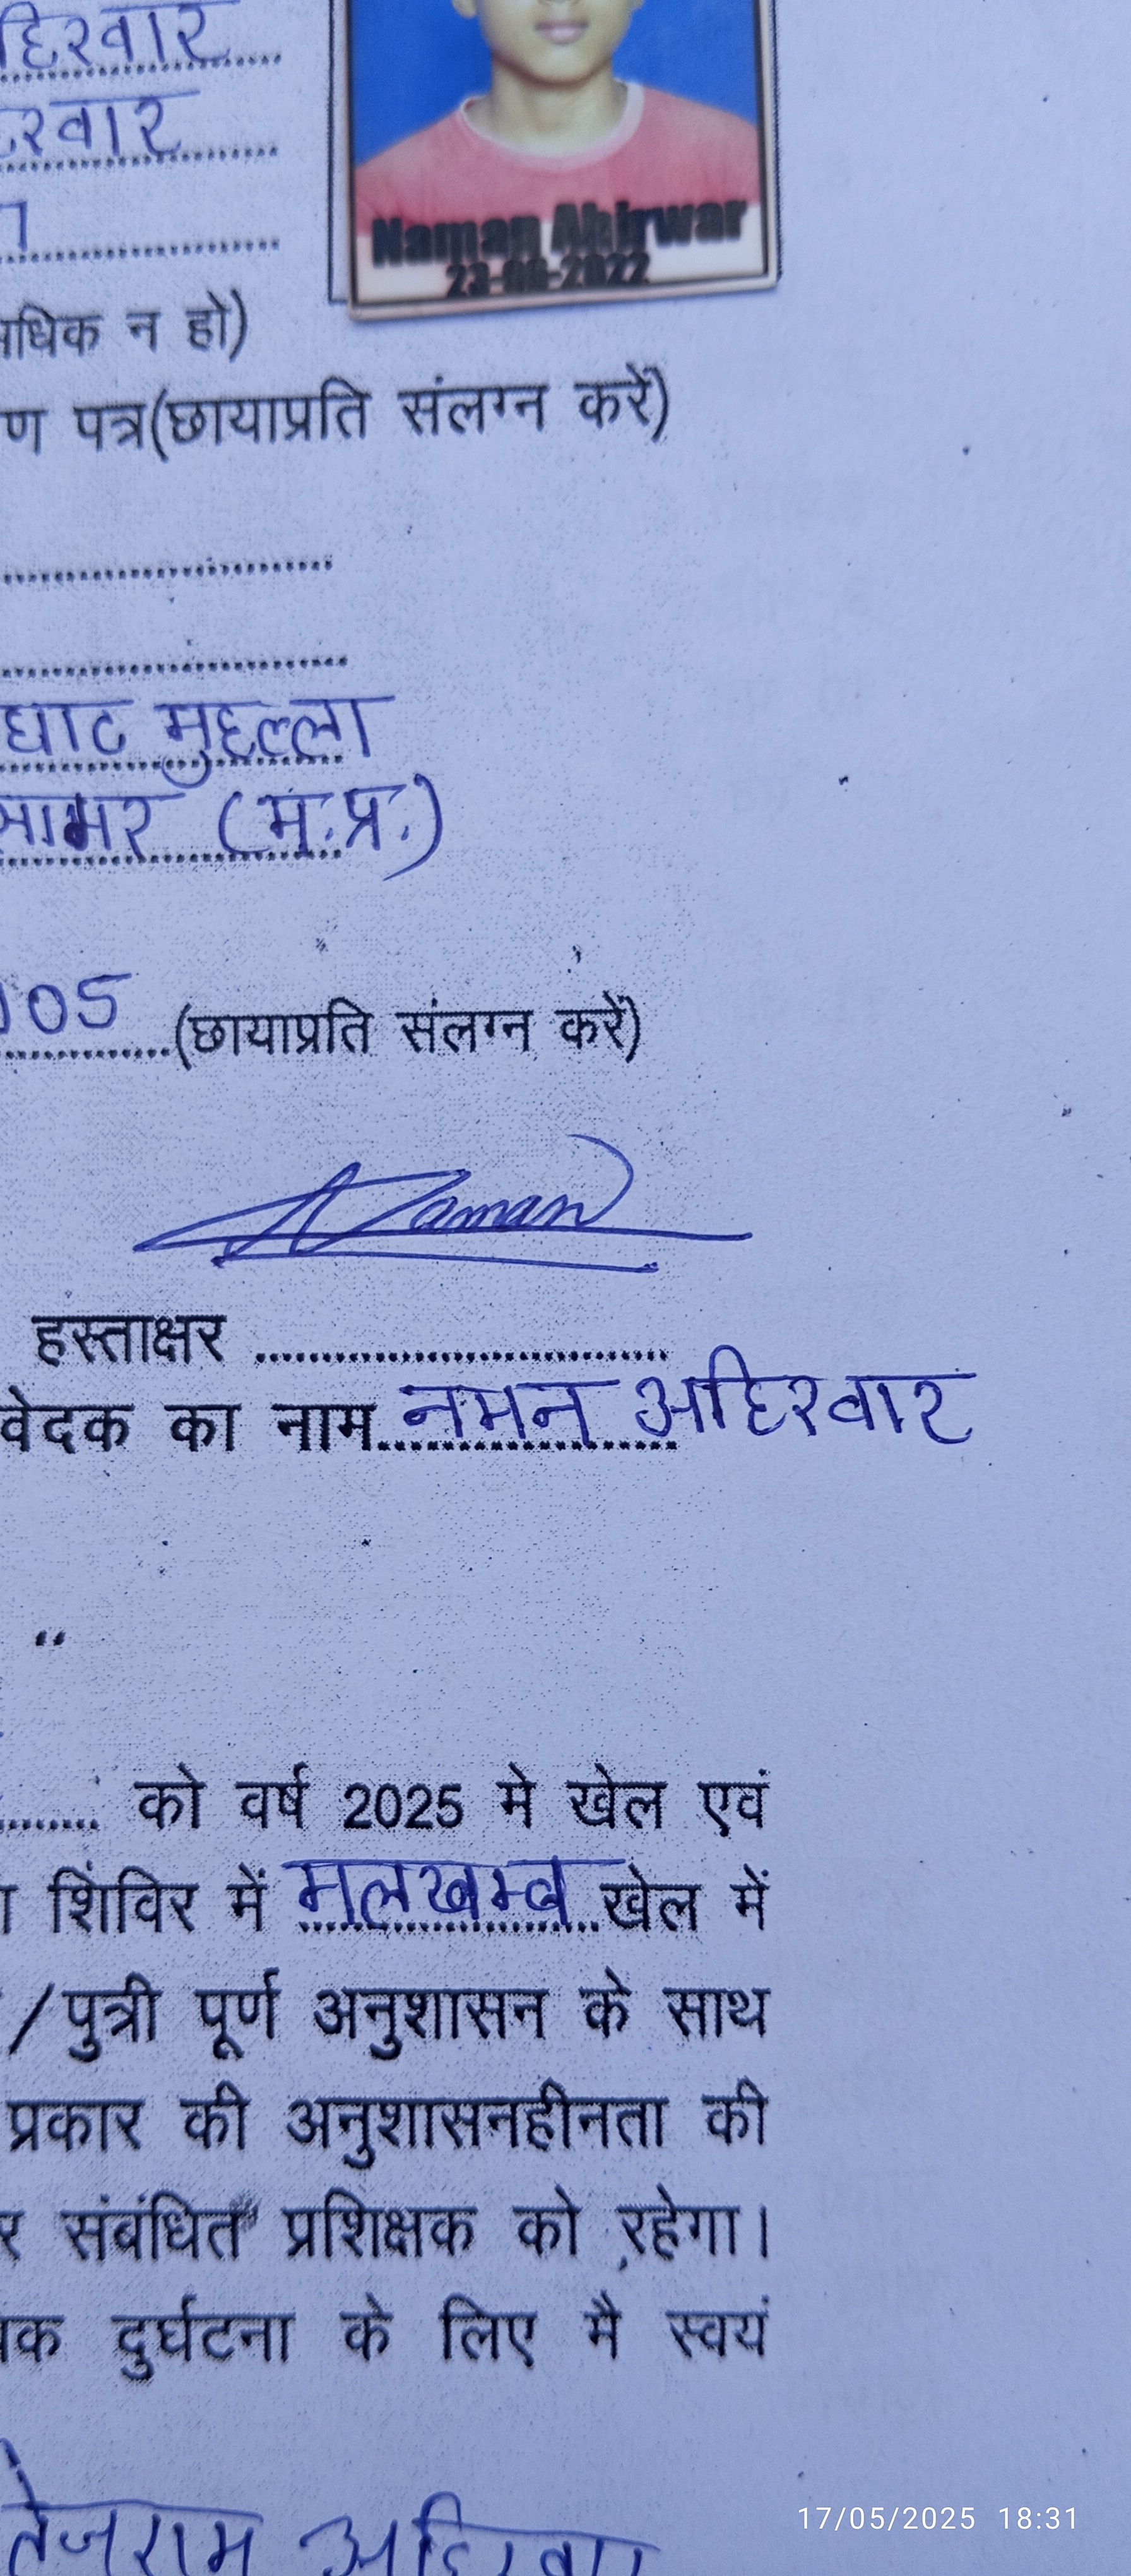 अहिरवार
अहिरवार
Naman Ahirwar
23-06-2022
अधिक न हो)
पत्र(छायाप्रति संलग्न करें)
घाट मुहल्ला
सागर (म.प्र.)
105 (छायाप्रति संलग्न करें)
Naman
हस्ताक्षर
वेदक का नाम नमन अहिरवार
"
को वर्ष 2025 मे खेल एवं
शिविर में मलखम्ब खेल में
/पुत्री पूर्ण अनुशासन के साथ
प्रकार की अनुशासनहीनता की
संबंधित प्रशिक्षक को रहेगा।
दुर्घटना के लिए मै स्वयं
तेजराम अहिरवार
17/05/2025 18:31